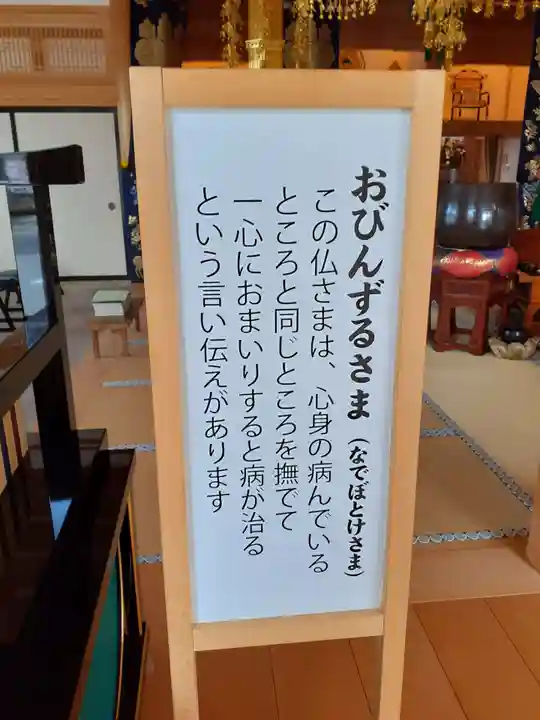 おびんずるさま（なでぼとけさま）
この仏さまは、心身の病んでいる
ところと同じところを撫でて
一心におまいりすると病が治る
という言い伝えがあります